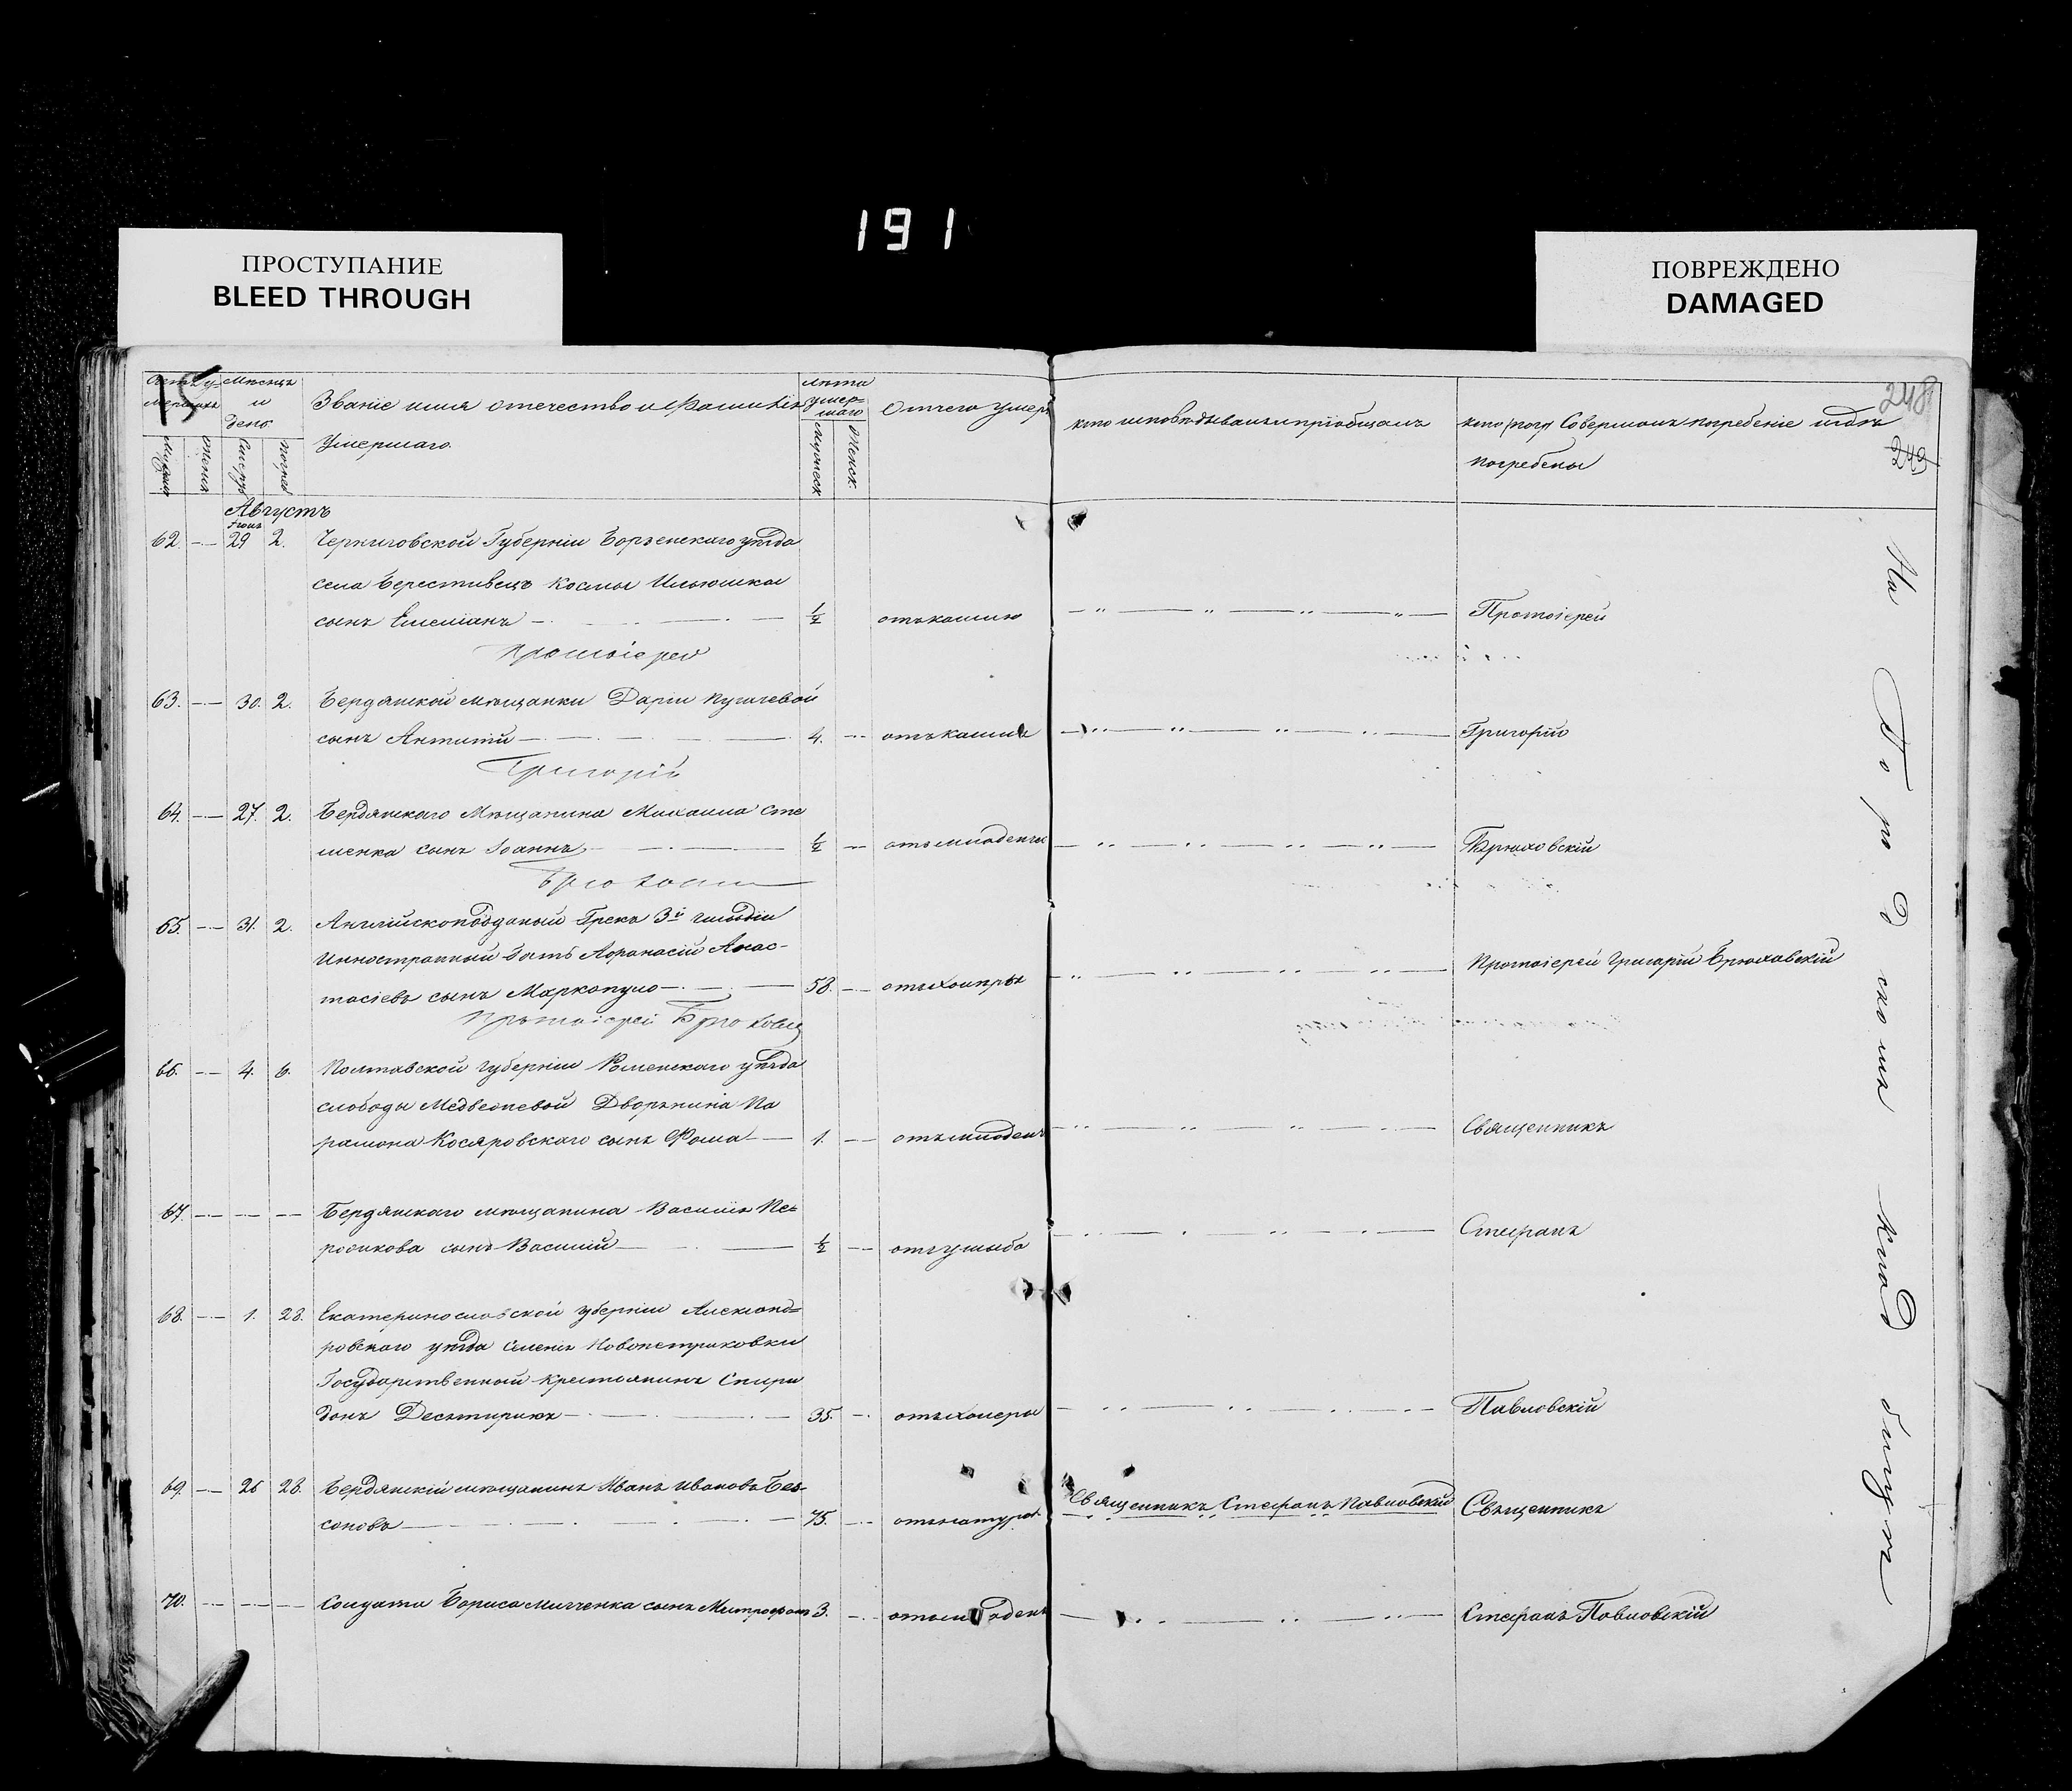 191
ПРОСТУПАНИЕ
BLEED THROUGH
ПОВРЕЖДЕНО
DAMAGED
248
249
Мѣсяцъ и день
Званіе имя отечество и фамилія умершаго.
лѣта умершаго
Отчего умеръ
кто исповѣдывалъ и пріобщалъ
кто (погр) Совершалъ погребеніе и гдѣ
погребены
Мужеск
Женск.
Августъ
62. 29 2. Черниговской Губерніи Борзенскаго уѣзда
села Берестивецъ Космы Ильюшка
сынъ Емеліанъ ½ отъ кашлю Протоіерей
Протоіерей
63. 30. 2. Бердянской мѣщанки Даріи Пугачевой
сынъ Антипій 4. отъ кашля Григорій
Григорій
64. 27. 2. Бердянскаго Мѣщанина Михаила Сте
шенка сынъ Іоаннъ ½ отъ младенч Брюховскій
65. 31. 2. Англійскоподданый Грекъ 3й гильдіи
Инностранный гость Афанасій Анас-
тасіевъ сынъ Маркопуло 58. отъ холеры Протоіерей Григорій Брюховскій
Протоіерей
66. 4. 6. Полтавской губерніи Роменскаго уѣзда
слободы Дворянина Па
рамона Косяровскаго сынъ Фома 1. отъ младен Священникъ
67. Бердянскаго мѣщанина Василія
сынъ Василій ½ отъ ушыба Стефанъ
68. 1. 28. Екатеринославской губерніи Александ=
ровскаго уѣзда селенія Новопетриковки
Государственный крестьянинъ Спири
донъ 35. отъ холеры Павловскій
69. 26 28. Бердянскій мѣщанинъ Иванъ Ивановъ Без-
соновъ 75. отъ натура Священникъ Стефанъ Павловскій Священникъ
70. Солдата Бориса сынъ Митрофанъ 3. отъ младен Стефанъ Павловскій
На Городскомъ Клад бищѣ